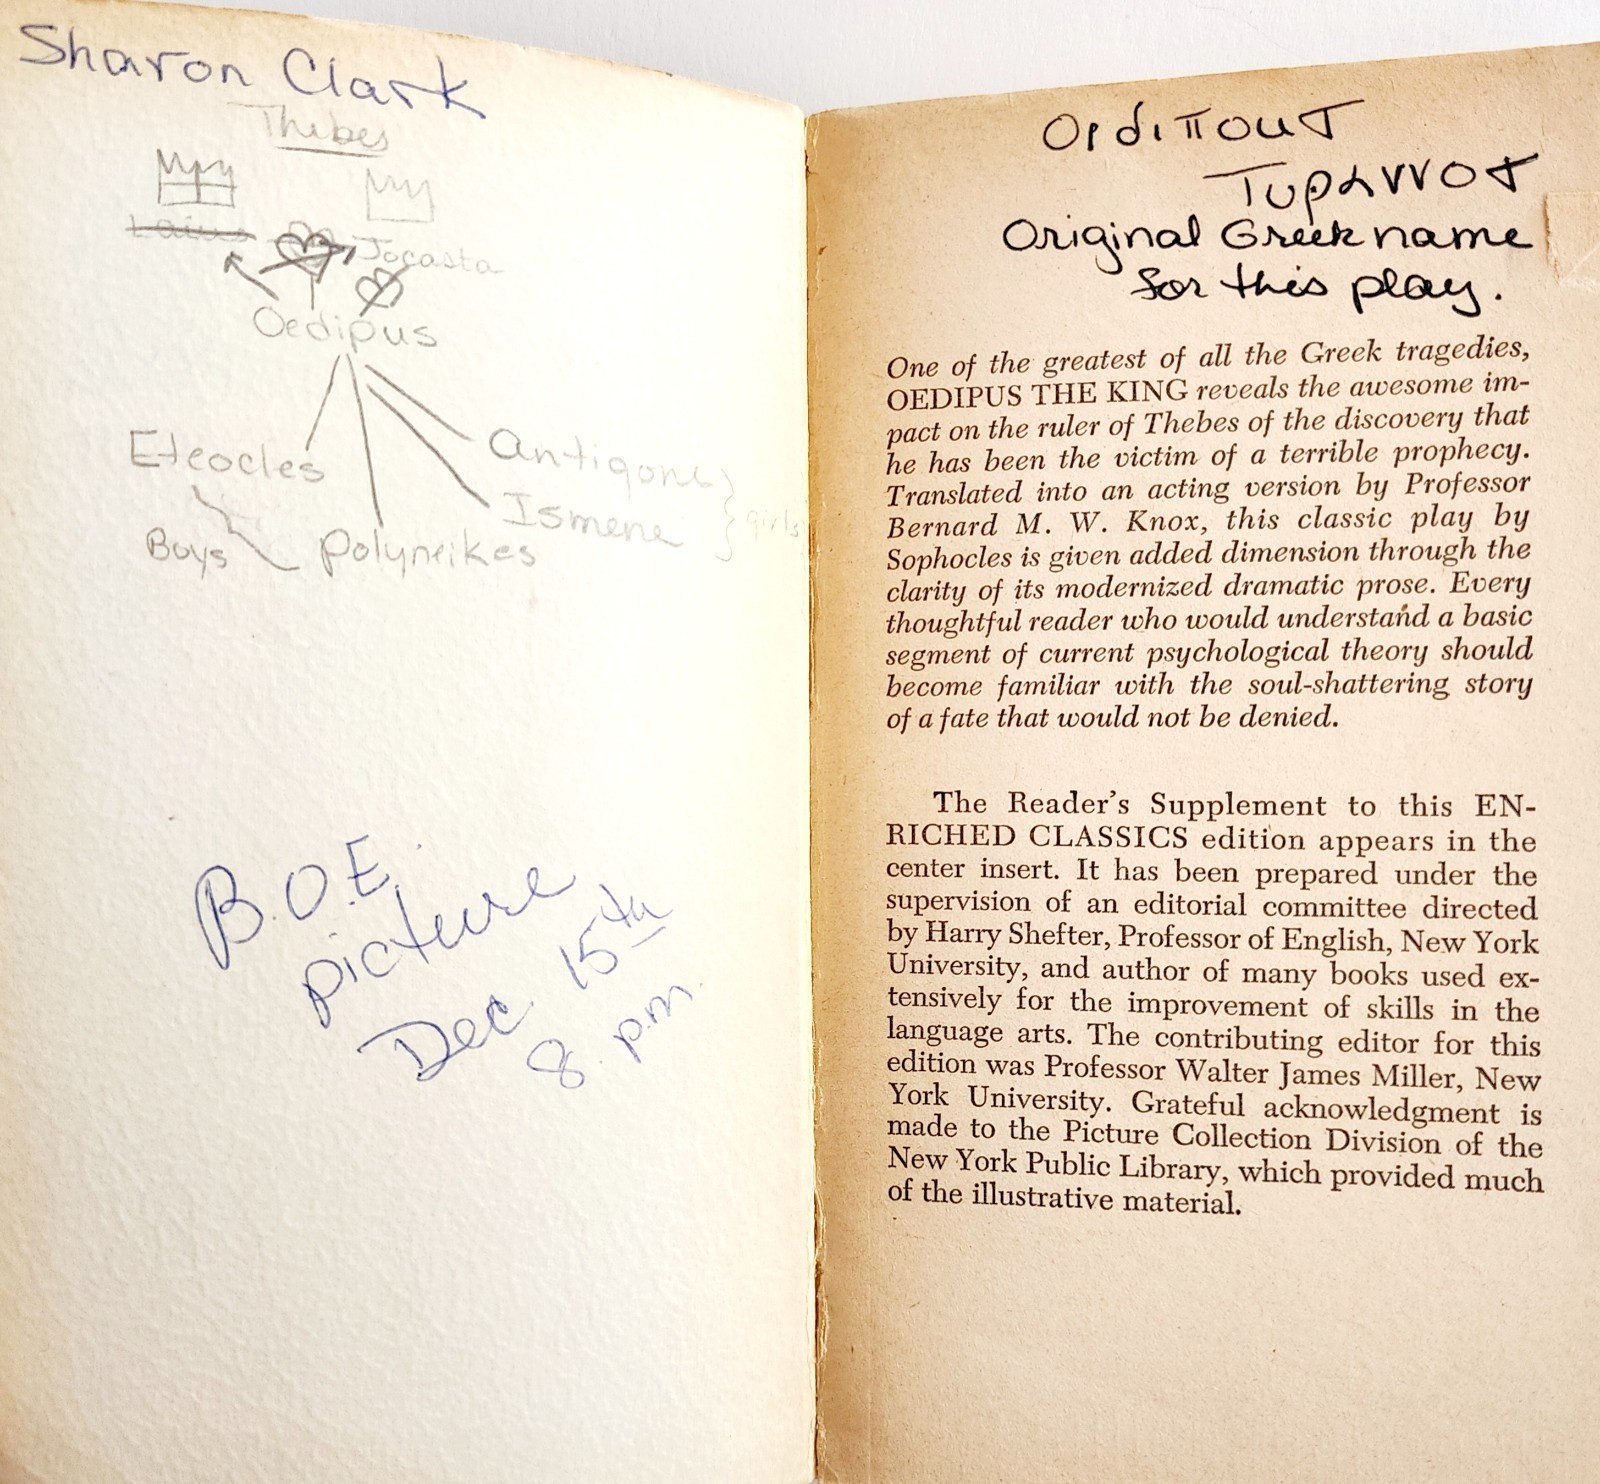 Sharon Clark
Thebes
Laius
Jocasta
Oedipus
Eteocles
Antigone
Ismene
girls
Boys
Polyneikes
B.O.E.
picture
Dec. 15th
8 p.m.
Οιδιπουσ
Τυραννοσ
Original Greek name
for this play.
One of the greatest of all the Greek tragedies,
OEDIPUS THE KING reveals the awesome im-
pact on the ruler of Thebes of the discovery that
he has been the victim of a terrible prophecy.
Translated into an acting version by Professor
Bernard M. W. Knox, this classic play by
Sophocles is given added dimension through the
clarity of its modernized dramatic prose. Every
thoughtful reader who would understand a basic
segment of current psychological theory should
become familiar with the soul-shattering story
of a fate that would not be denied.
The Reader's Supplement to this EN-
RICHED CLASSICS edition appears in the
center insert. It has been prepared under the
supervision of an editorial committee directed
by Harry Shefter, Professor of English, New York
University, and author of many books used ex-
tensively for the improvement of skills in the
language arts. The contributing editor for this
edition was Professor Walter James Miller, New
York University. Grateful acknowledgment is
made to the Picture Collection Division of the
New York Public Library, which provided much
of the illustrative material.